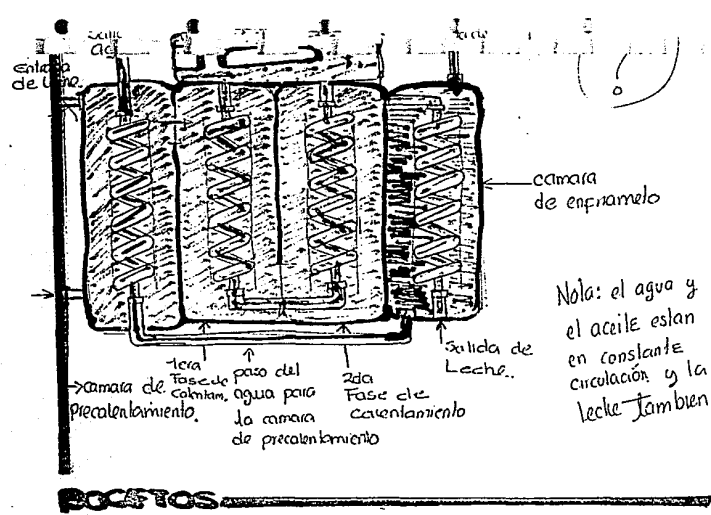 Entrada
de Leche.
camara
de enfriamelo
Nota: el agua y
el aceite estan
en constante
circulación y la
leche Tambien
Salida de
Leche..
1era
Fase de
Calentam.
paso del
agua para
la camara
de precalentamiento
2da
Fase de
calentamiento
camara de
precalentamiento.
BOCETOS